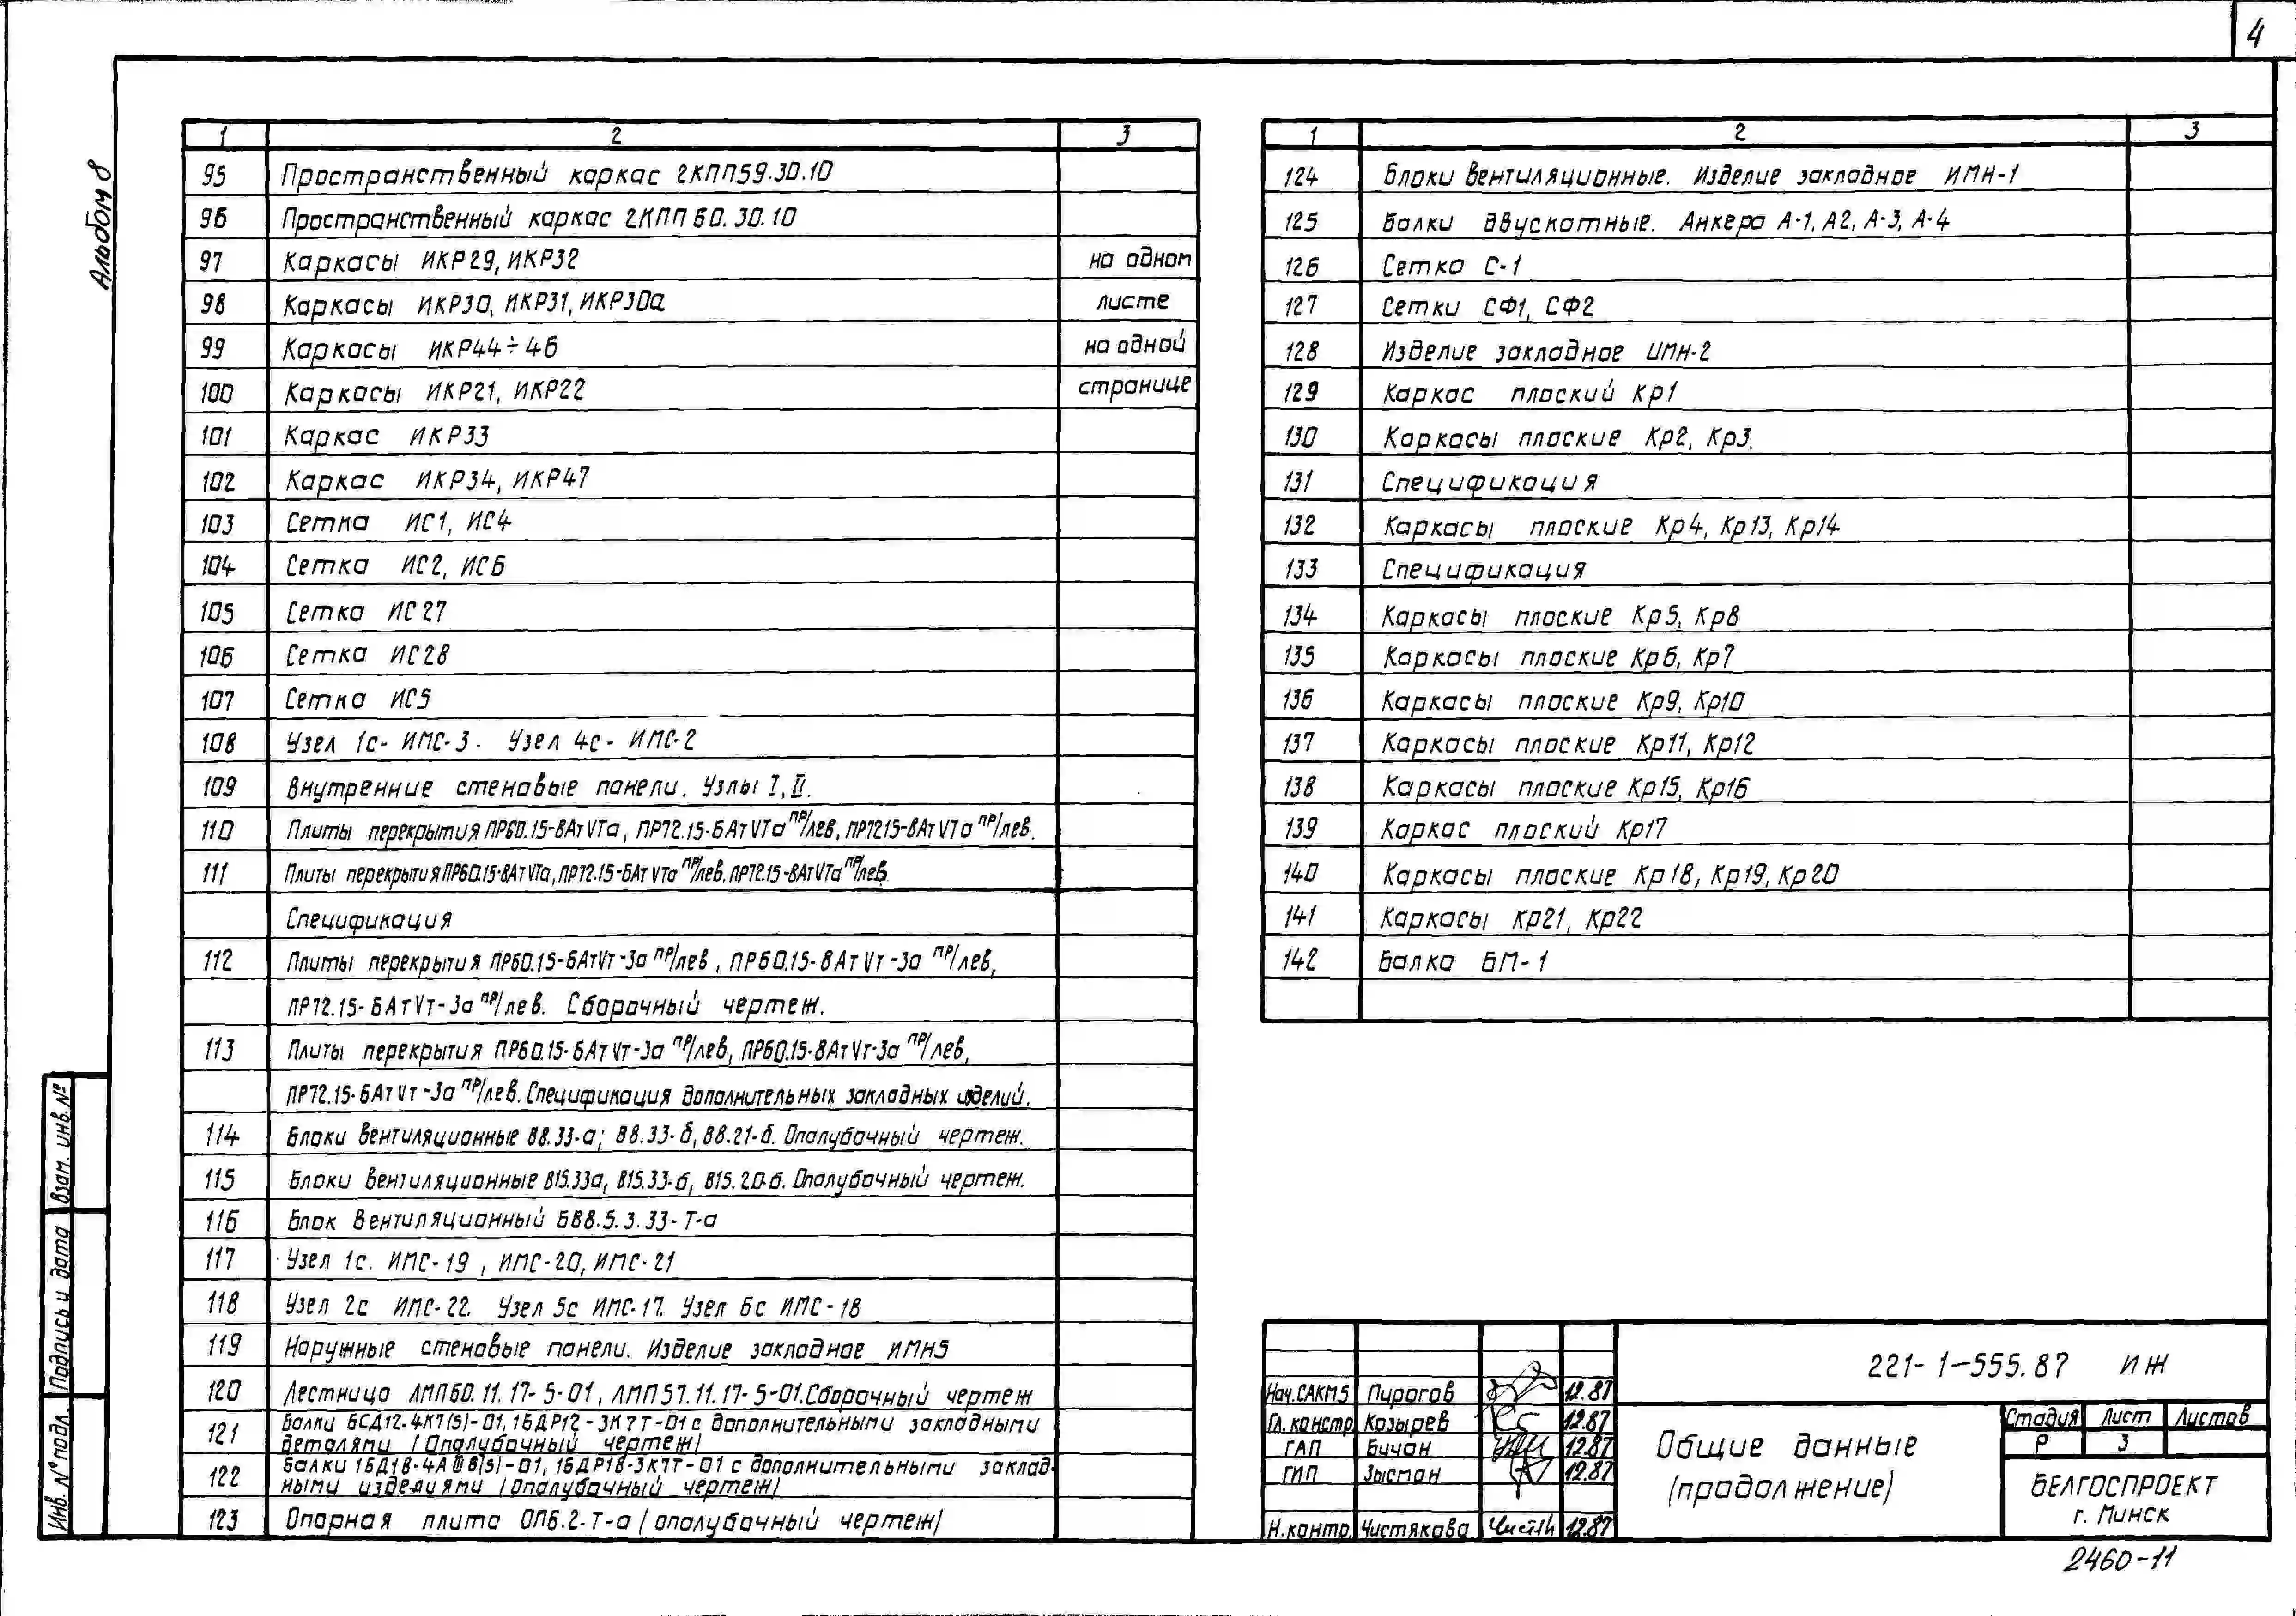 4
Альбом 8
1 2 3
95 Пространственный каркас 2КПП59.30.10
96 Пространственный каркас 2КПП60.30.10
97 Каркасы ИКР29, ИКР32 на одном
98 Каркасы ИКР30, ИКР31, ИКР30а листе
99 Каркасы ИКР44÷46 на одной
100 Каркасы ИКР21, ИКР22 странице
101 Каркас ИКР33
102 Каркас ИКР34, ИКР47
103 Сетка ИС1, ИС4
104 Сетка ИС2, ИС6
105 Сетка ИС27
106 Сетка ИС28
107 Сетка ИС5
108 Узел 1с- ИМС-3. Узел 4с- ИМС-2
109 Внутренние стеновые панели. Узлы I, II.
110 Плиты перекрытия ПР60.15-8АтVТа, ПР72.15-6АтVТа пр/лев, ПР72.15-8АтVТа пр/лев.
111 Плиты перекрытия ПР60.15-8АтVТа, ПР72.15-6АтVТа пр/лев, ПР72.15-8АтVТа пр/лев.
Спецификация
112 Плиты перекрытия ПР60.15-6АтVт-3а пр/лев, ПР60.15-8АтVт-3а пр/лев,
ПР72.15-6АтVт-3а пр/лев. Сборочный чертеж.
113 Плиты перекрытия ПР60.15-6АтVт-3а пр/лев, ПР60.15-8АтVт-3а пр/лев,
ПР72.15-6АтVт-3а пр/лев. Спецификация дополнительных закладных изделий.
114 Блоки вентиляционные В8.33-а; В8.33-б, В8.21-б. Опалубочный чертеж.
115 Блоки вентиляционные В15.33а, В15.33-б, В15.20-б. Опалубочный чертеж.
116 Блок вентиляционный БВ8.5.3.33-Т-а
117 Узел 1с. ИМС-19, ИМС-20, ИМС-21
118 Узел 2с ИМС-22. Узел 5с ИМС-17. Узел 6с ИМС-18
119 Наружные стеновые панели. Изделие закладное ИМН5
120 Лестница ЛМП60.11.17-5-01, ЛМП57.11.17-5-01. Сборочный чертеж
121 Балки БСД12-4К7(5)-01, 1БДР12-3К7Т-01 с дополнительными закладными
деталями (Опалубочный чертеж)
122 Балки 1БД18-4АIIIв(5)-01, 1БДР18-3К7Т-01 с дополнительными заклад-
ными изделиями (Опалубочный чертеж)
123 Опорная плита ОП6.2-Т-а (опалубочный чертеж)
1 2 3
124 Блоки вентиляционные. Изделие закладное ИМН-1
125 Балки двускатные. Анкера А-1, А2, А-3, А-4
126 Сетка С-1
127 Сетки СФ1, СФ2
128 Изделие закладное ИМН-2
129 Каркас плоский Кр1
130 Каркасы плоские Кр2, Кр3.
131 Спецификация
132 Каркасы плоские Кр4, Кр13, Кр14
133 Спецификация
134 Каркасы плоские Кр5, Кр8
135 Каркасы плоские Кр6, Кр7
136 Каркасы плоские Кр9, Кр10
137 Каркасы плоские Кр11, Кр12
138 Каркасы плоские Кр15, Кр16
139 Каркас плоский Кр17
140 Каркасы плоские Кр18, Кр19, Кр20
141 Каркасы Кр21, Кр22
142 Балка БМ-1
Взам. инв. №
Подпись и дата
Инв. № подл.
Нач. САКМ5 Пирогов 12.87
Гл. констр Козырев 12.87
ГАП Бичан 12.87
ГИП Зысман 12.87
Н. контр. Чистякова 12.87
221-1-555.87 ИЖ
Общие данные
(продолжение)
Стадия Лист Листов
Р 3
БЕЛГОСПРОЕКТ
г. Минск
2460-11